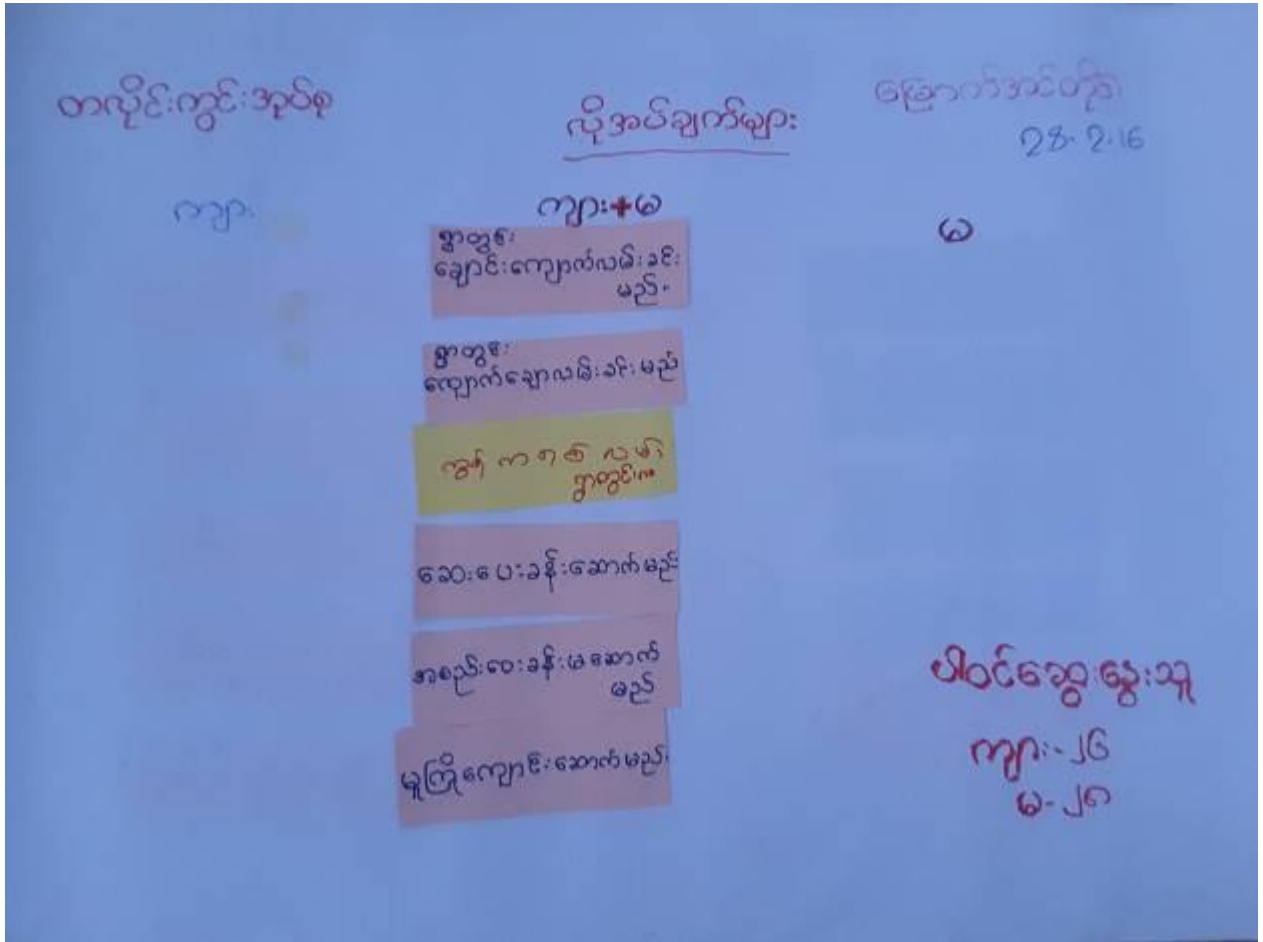 တလိုင်းကွင်းအုပ်စု
လိုအပ်ချက်များ
မြောက်အင်တိုင်း
28.2.16
ကျား
ကျား+မ
မ
ရွာတွင်း
ချောင်းကျောက်လမ်းခင်း
မည်။
ရွာတွင်း
ကျောက်ချောလမ်းခင်းမည်
ကွန်ကရစ်လမ်း
ရွာတွင်း
ဆေးပေးခန်းဆောက်မည်
အစည်းဝေးခန်းမဆောက်
မည်
မူကြိုကျောင်းဆောက်မည်။
ပါဝင်ဆွေးနွေးသူ
ကျား-၂၆
မ-၂၈